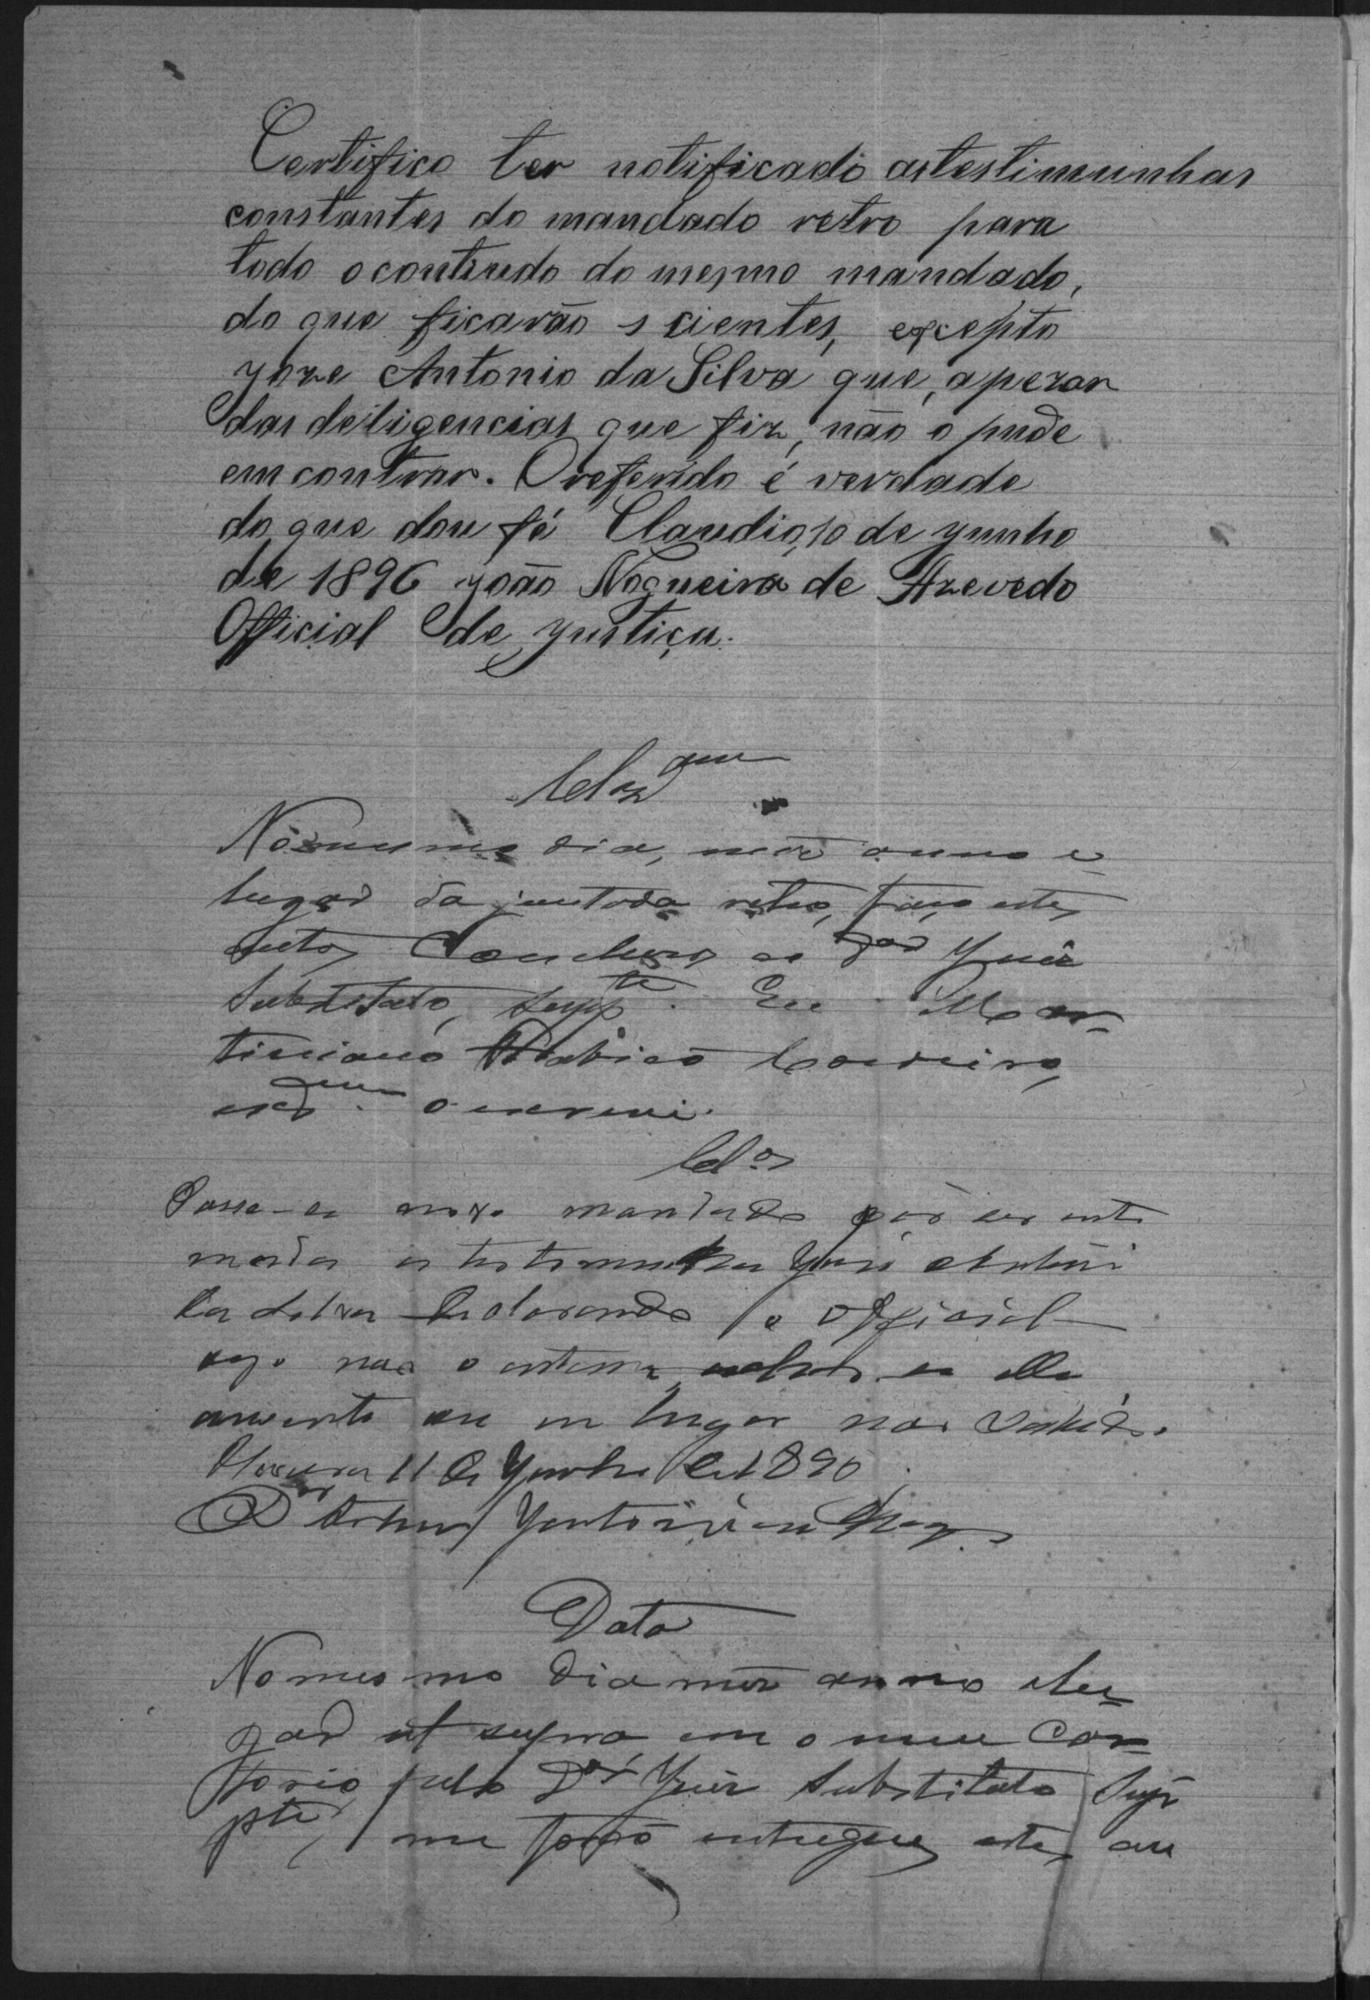 Certifico ter notificado astestimunhas
constantes do mandado retro para
todo ocontiudo do mesmo mandado,
do que ficarão scientes, excepto
Joze Antonio da Silva que, apezar
das deligencias que fiz, não o pude
emcontrar. O referido é verdade
do que dou fé Claudio, 10 de Junho
de 1896 João Nogueira de Azevedo
Official de Justiça.
Clzam
No mesmo dia, mez anno e
lugar da juntada retro, faço estes
autos Concluzos ao Dor Juiz
Substituto, suppte. Eu Mar-
ticiano Cordeiro,
escam o escrevi.
Clos
Passe-se novo mandado
as testemunhas José Antonio
da Silva declarando o Official
não o
ausente ou em lugar não sabido.
11 de Junho de 1896
Dr Arthur
Data
No mesmo dia mez anno e lu-
gar ut supra em o meu Car-
torio pelo Dor Juiz Substituto Sup-
pte, me forão entregues estes au